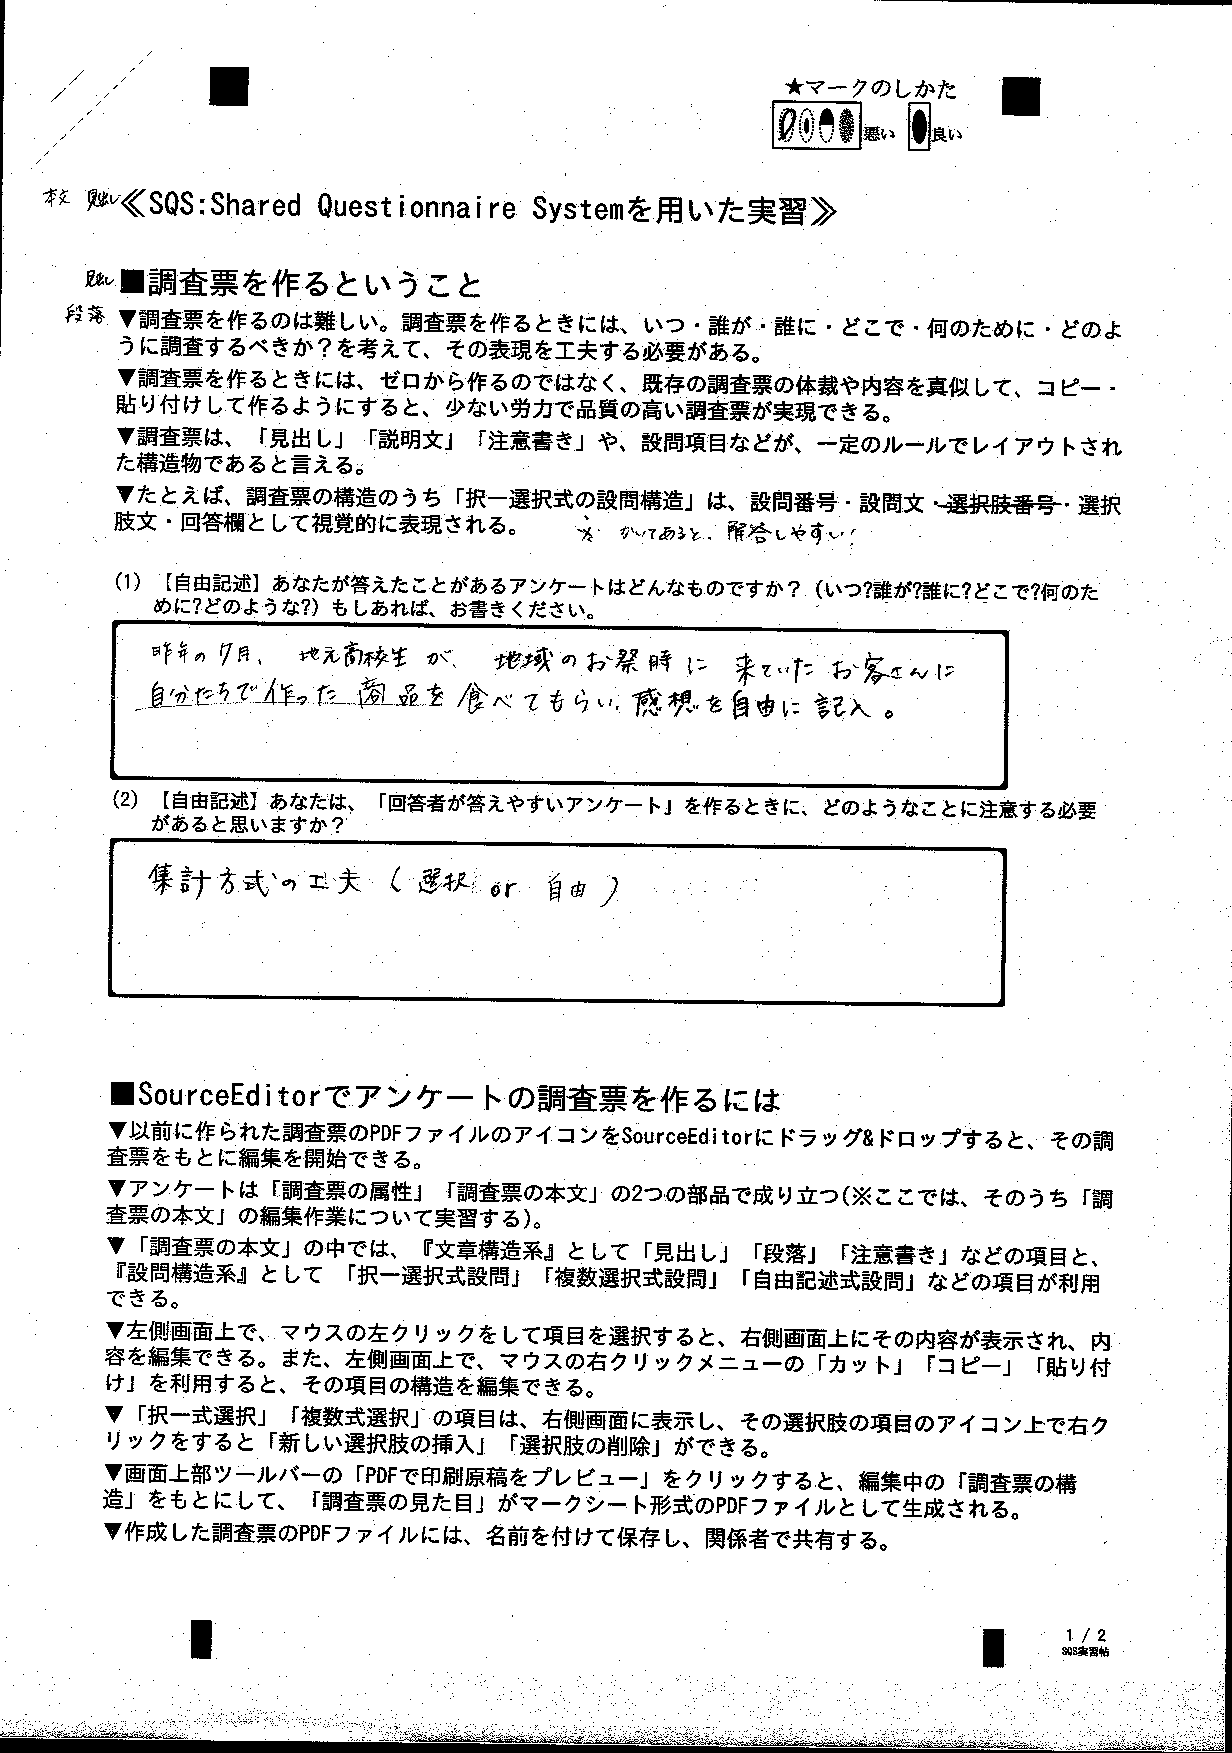 ★マークのしかた
悪い 良い
本文 見出し ≪SQS:Shared Questionnaire Systemを用いた実習≫
見出し ■調査票を作るということ
段落 ▼調査票を作るのは難しい。調査票を作るときには、いつ・誰が・誰に・どこで・何のために・どのよ
うに調査するべきか？を考えて、その表現を工夫する必要がある。
▼調査票を作るときには、ゼロから作るのではなく、既存の調査票の体裁や内容を真似して、コピー・
貼り付けして作るようにすると、少ない労力で品質の高い調査票が実現できる。
▼調査票は、「見出し」「説明文」「注意書き」や、設問項目などが、一定のルールでレイアウトされ
た構造物であると言える。
▼たとえば、調査票の構造のうち「択一選択式の設問構造」は、設問番号・設問文・選択肢番号・選択
肢文・回答欄として視覚的に表現される。
かいてあると、解答しやすい!
(1) 【自由記述】あなたが答えたことがあるアンケートはどんなものですか？（いつ?誰が?誰に?どこで?何のた
めに?どのような?）もしあれば、お書きください。
昨年の7月、地元高校生が、地域のお祭時に来ていたお客さんに
自分たちで作った商品を食べてもらい、感想を自由に記入。
(2) 【自由記述】あなたは、「回答者が答えやすいアンケート」を作るときに、どのようなことに注意する必要
があると思いますか？
集計方式の工夫（選択 or 自由）
■SourceEditorでアンケートの調査票を作るには
▼以前に作られた調査票のPDFファイルのアイコンをSourceEditorにドラッグ&ドロップすると、その調
査票をもとに編集を開始できる。
▼アンケートは「調査票の属性」「調査票の本文」の2つの部品で成り立つ(※ここでは、そのうち「調
査票の本文」の編集作業について実習する)。
▼「調査票の本文」の中では、『文章構造系』として「見出し」「段落」「注意書き」などの項目と、
『設問構造系』として 「択一選択式設問」「複数選択式設問」「自由記述式設問」などの項目が利用
できる。
▼左側画面上で、マウスの左クリックをして項目を選択すると、右側画面上にその内容が表示され、内
容を編集できる。また、左側画面上で、マウスの右クリックメニューの「カット」「コピー」「貼り付
け」を利用すると、その項目の構造を編集できる。
▼「択一式選択」「複数式選択」の項目は、右側画面に表示し、その選択肢の項目のアイコン上で右ク
リックをすると「新しい選択肢の挿入」「選択肢の削除」ができる。
▼画面上部ツールバーの「PDFで印刷原稿をプレビュー」をクリックすると、編集中の「調査票の構
造」をもとにして、「調査票の見た目」がマークシート形式のPDFファイルとして生成される。
▼作成した調査票のPDFファイルには、名前を付けて保存し、関係者で共有する。
1 / 2
SQS実習帖